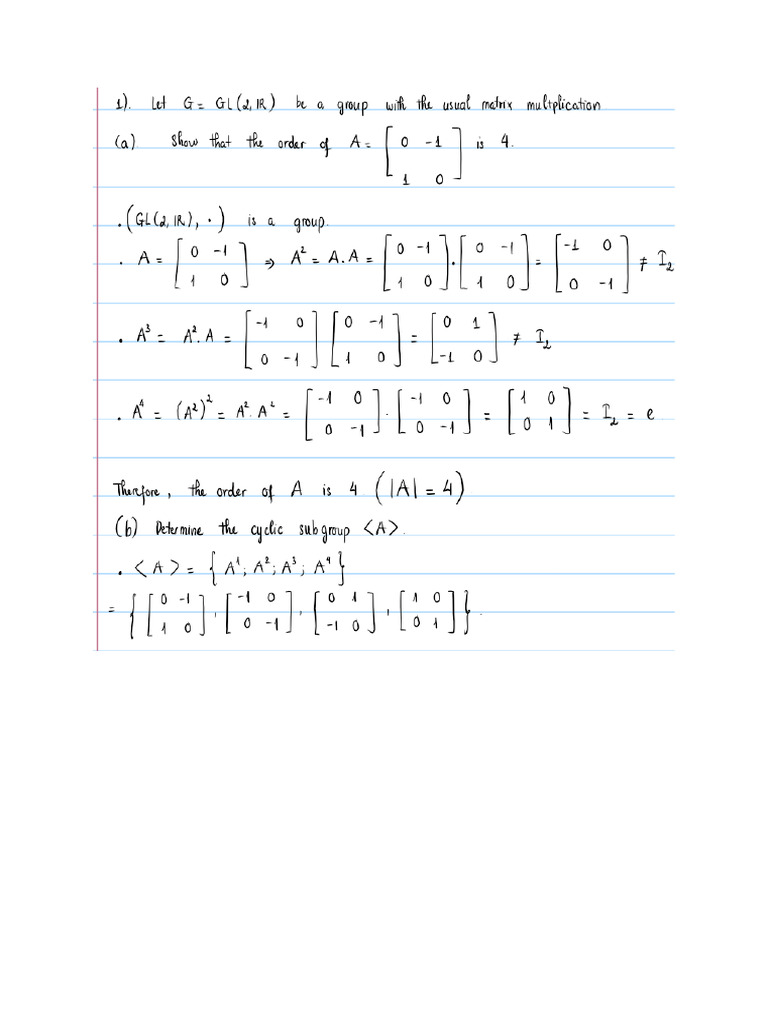 1). Let G = GL(2,IR) be a group with the usual matrix multplication
(a) Show that the order of A = [0 -1; 1 0] is 4.
. (GL(2,IR), ·) is a group.
. A = [0 -1; 1 0] => A² = A.A = [0 -1; 1 0] · [0 -1; 1 0] = [-1 0; 0 -1] ≠ I₂
. A³ = A².A = [-1 0; 0 -1] [0 -1; 1 0] = [0 1; -1 0] ≠ I₂
. A⁴ = (A²)² = A².A² = [-1 0; 0 -1] · [-1 0; 0 -1] = [1 0; 0 1] = I₂ = e
Therefore, the order of A is 4 (|A| = 4)
(b) Determine the cyclic subgroup <A>.
. <A> = {A¹; A²; A³; A⁴}
= {[0 -1; 1 0], [-1 0; 0 -1], [0 1; -1 0], [1 0; 0 1]}.